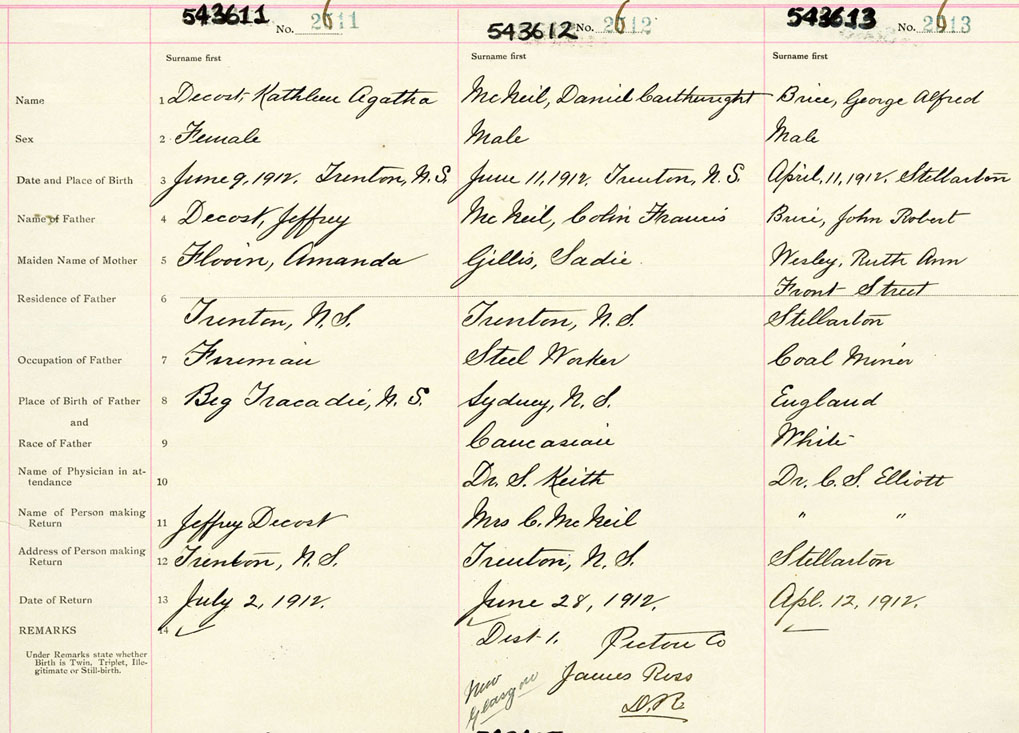 543611 No. 2611
543612 No. 2612
543613 No. 2613
Surname first Surname first Surname first
Name 1 Decost, Kathleen Agatha McNeil, Daniel Carthwright Brice, George Alfred
Sex 2 Female Male Male
Date and Place of Birth 3 June 9, 1912. Trenton, N.S. June 11, 1912. Trenton, N.S. April, 11, 1912. Stellarton
Name of Father 4 Decost, Jeffrey McNeil, Colin Francis Brice, John Robert
Maiden Name of Mother 5 Amanda Gillis, Sadie Wesley, Ruth Ann
Front Street
Residence of Father 6 Trenton, N.S. Trenton, N.S. Stellarton
Occupation of Father 7 Fireman Steel Worker Coal Miner
Place of Birth of Father 8 Big Tracadie, N.S. Sydney, N.S. England
and
Race of Father 9 Caucasian White
Name of Physician in at-
tendance 10 Dr. S. Keith Dr. C. S. Elliott
Name of Person making
Return 11 Jeffrey Decost Mrs C. McNeil " "
Address of Person making
Return 12 Trenton, N.S. Trenton, N.S. Stellarton
Date of Return 13 July 2, 1912. June 28, 1912. Apl. 12, 1912.
REMARKS 14
Under Remarks state whether
Birth is Twin, Triplet, Ille-
gitimate or Still-birth.
Dist 1. Pictou Co
James Ross
D.R.
New
Glasgow